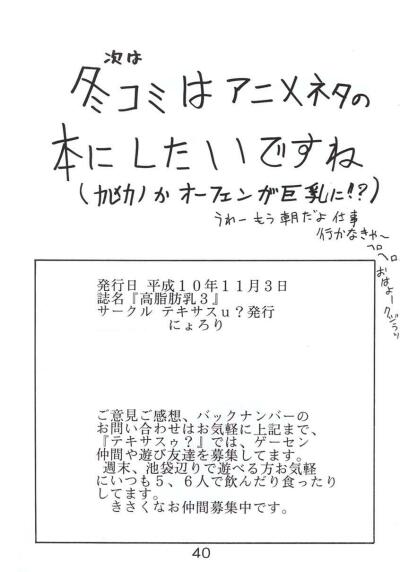 次は
冬コミはアニメネタの
本にしたいですね
(カレカノかオーフェンが巨乳に!?)
うわーもう朝だよ仕事
行かなきゃ〜
ヘロ
ヘロ
発行日 平成10年11月3日
誌名『高脂肪乳3』
サークル テキサスu?発行
にょろり
ご意見ご感想、バックナンバーの
お問い合わせはお気軽に上記まで、
『テキサスゥ?』では、ゲーセン
仲間や遊び友達を募集してます。
週末、池袋辺りで遊べる方お気軽
にいつも5、6人で飲んだり食ったり
してます。
きさくなお仲間募集中です。
40